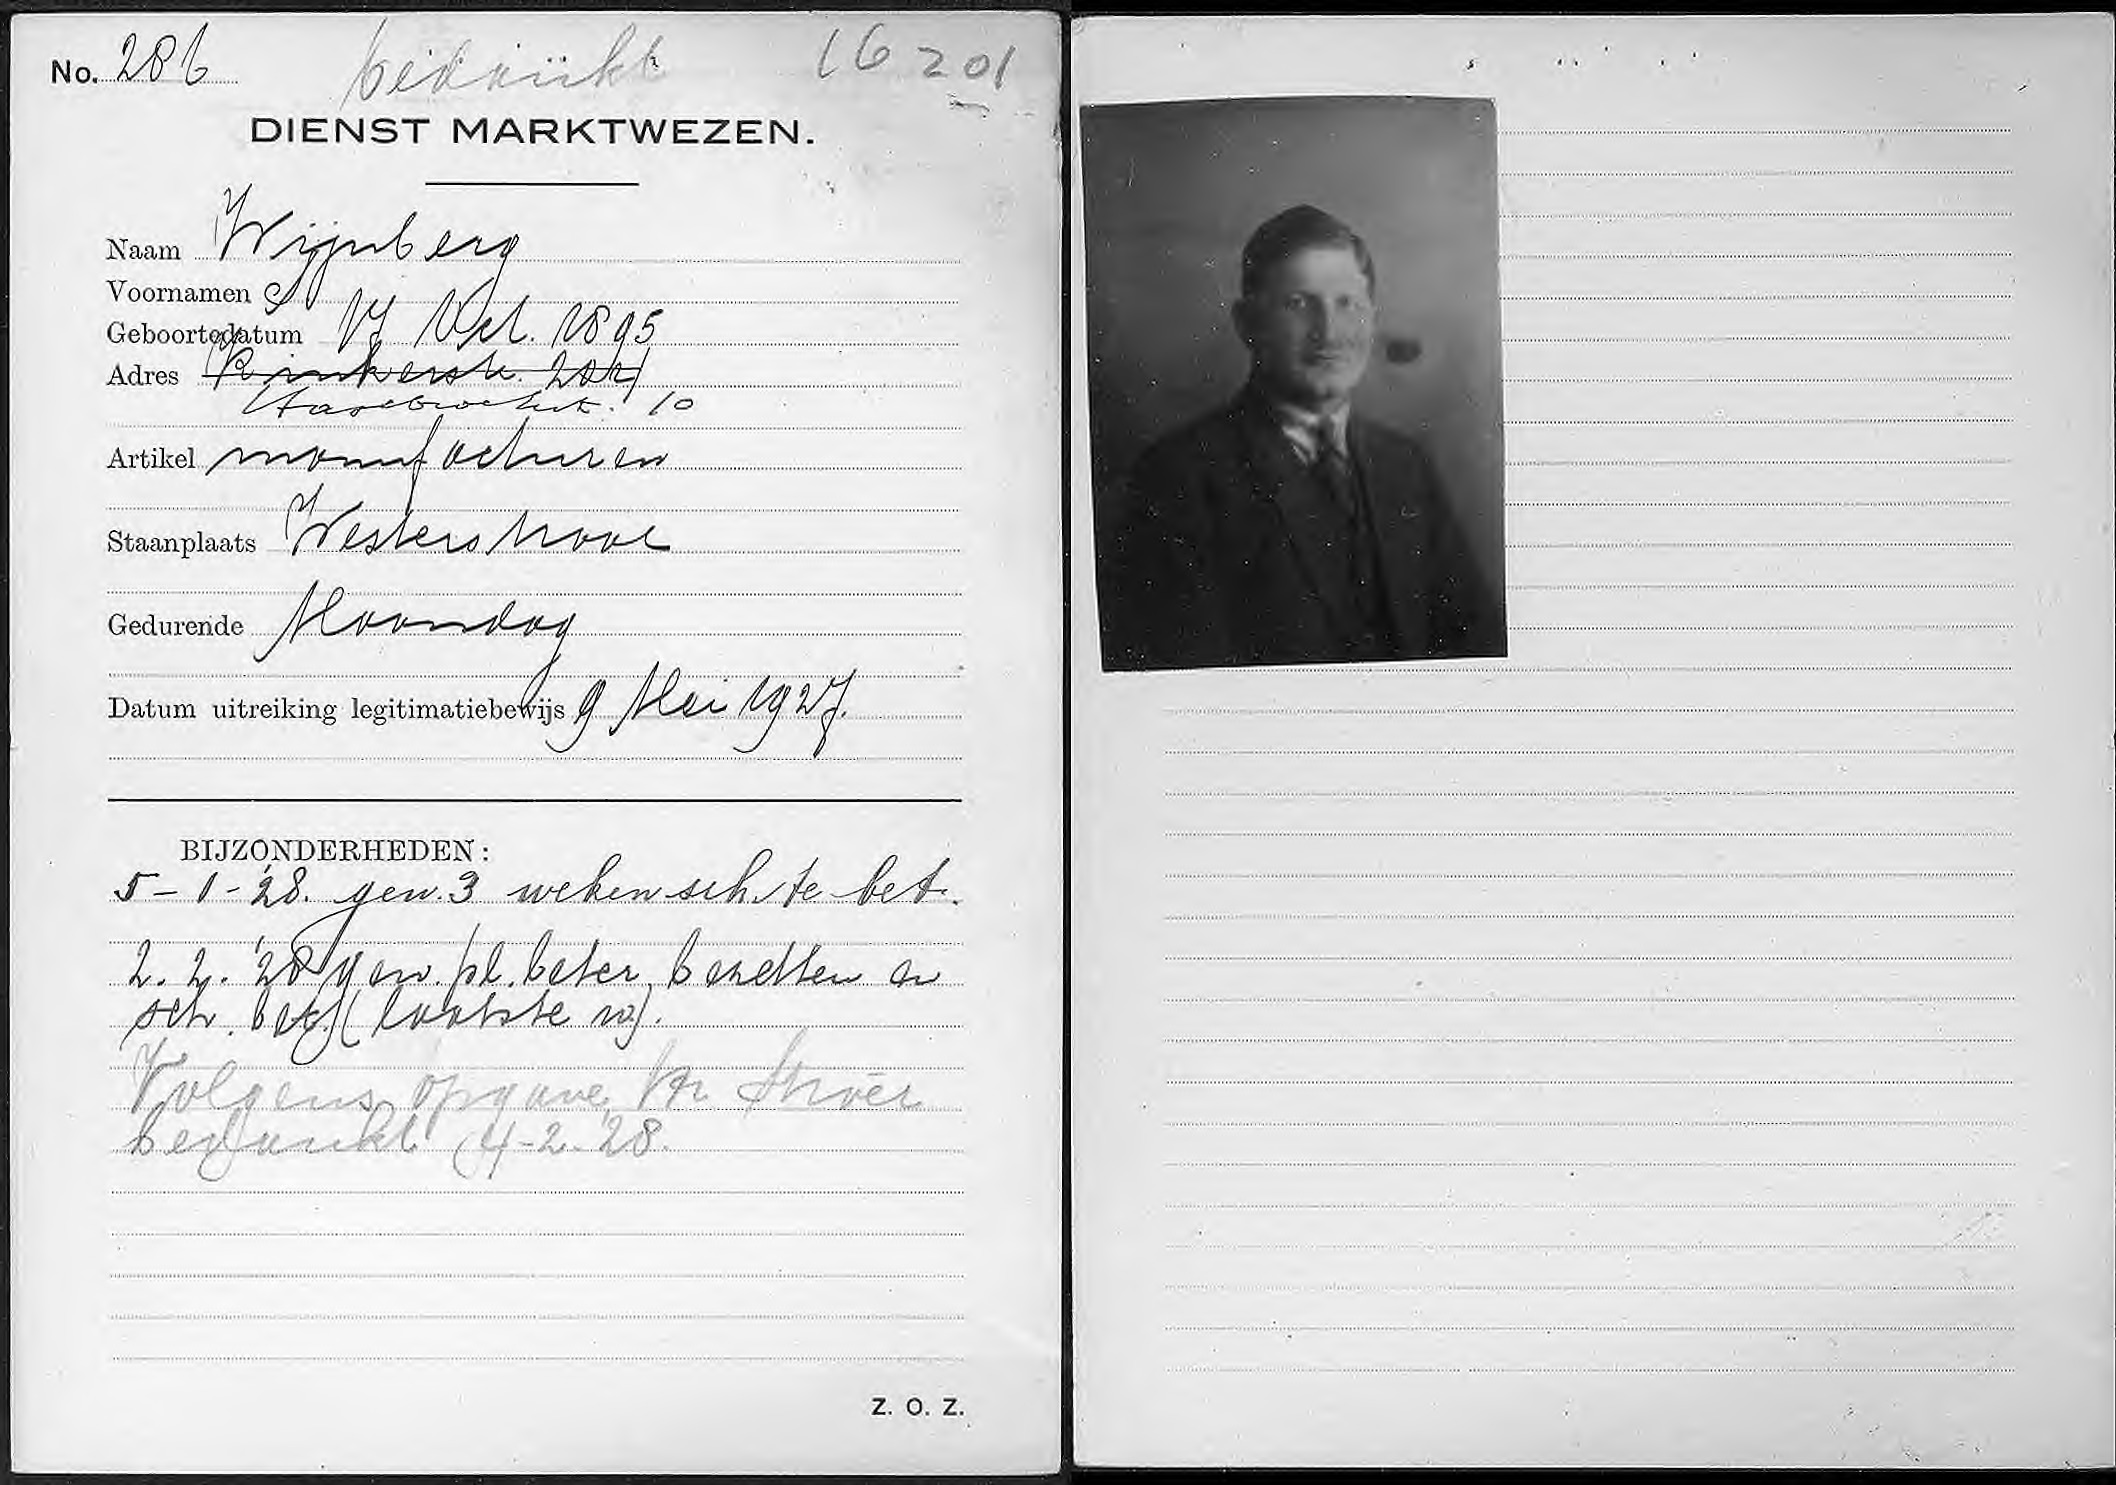 No. 286 bedankt 16 201
DIENST MARKTWEZEN.
Naam Wijnberg
Voornamen S
Geboortedatum 17 Oct. 1895
Adres Kinkerstr. 20
10
Artikel manufacturen
Staanplaats Westerstraat
Gedurende Maandag
Datum uitreiking legitimatiebewijs 9 Mei 1927.
BIJZONDERHEDEN:
5-1-'28. gew. 3 weken sch. te bet.
2.2.'28 gew. pl. beter bezetten en
sch. bet. (laatste w).
Volgens opgave
bedankt 14-2-'28.
Z. O. Z.